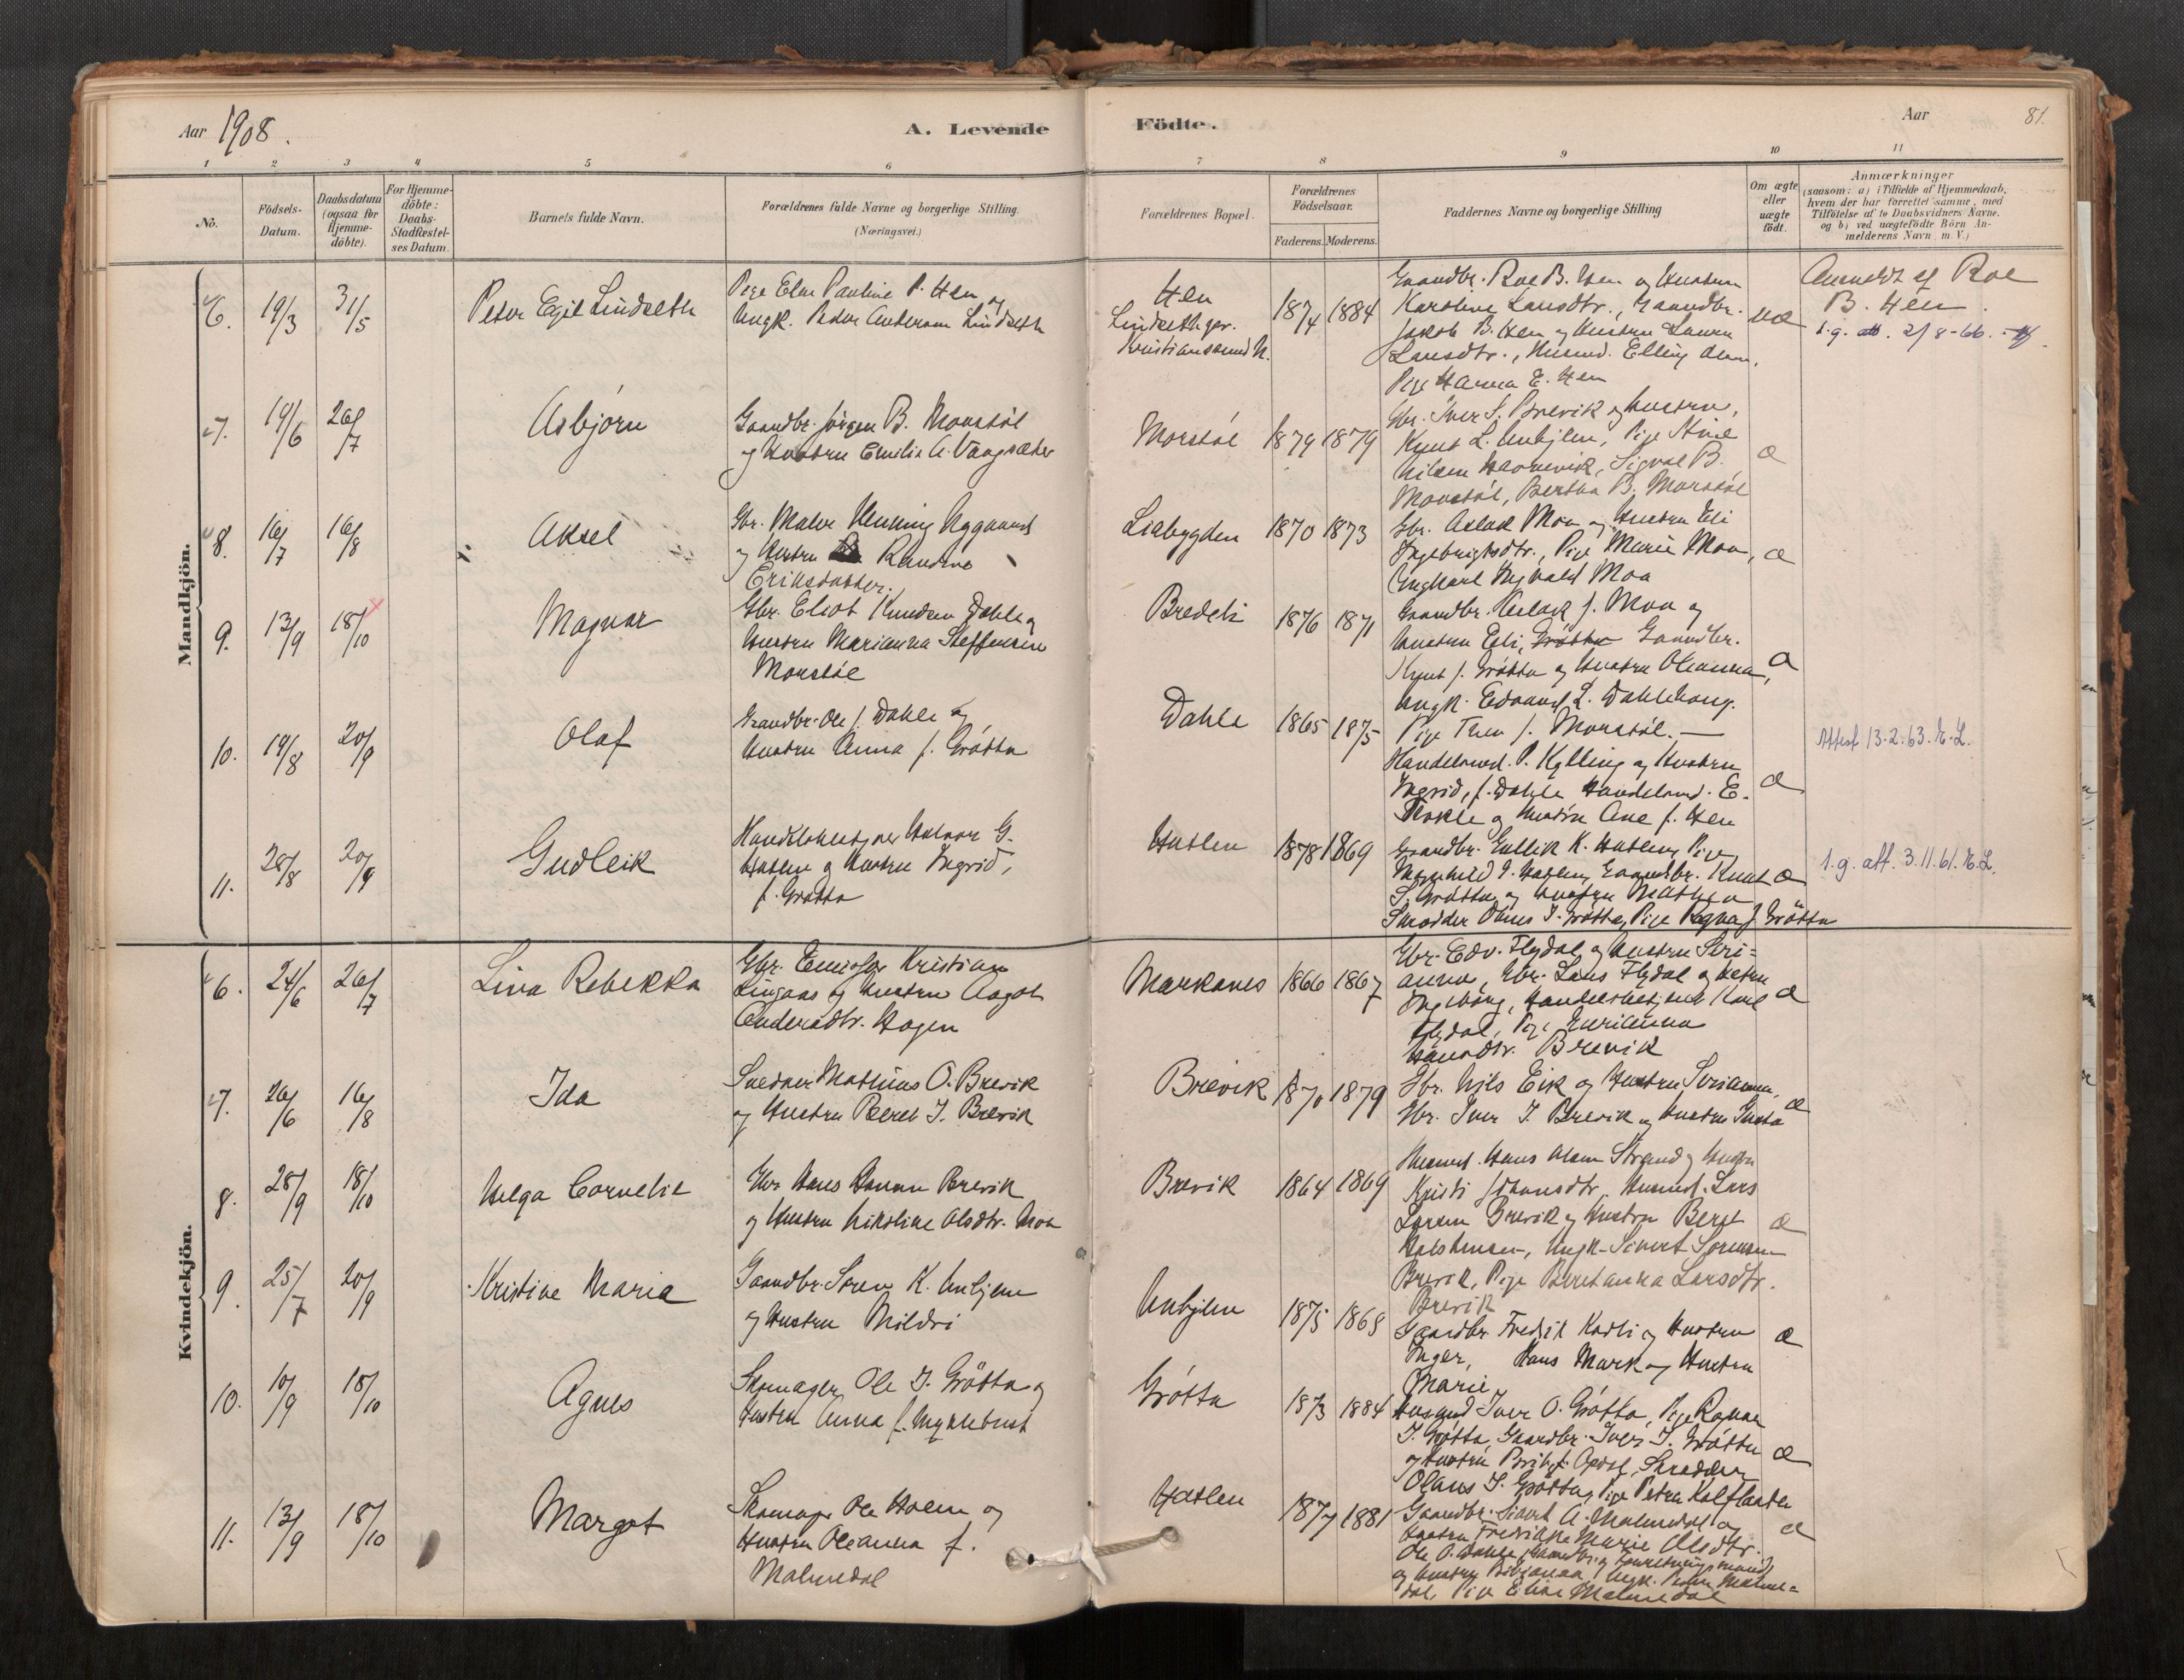 Aar 1908.
A. Levende
Födte.
Aar
81.
1 2 3 4 5 6 7 8 9 10 11
No.
Födsels-
Datum.
Daabsdatum
(ogsaa for
Hjemme-
döbte).
For Hjemme-
döbte:
Daabs-
Stadfæstel-
ses Datum.
Barnets fulde Navn.
Forældrenes fulde Navne og borgerlige Stilling.
(Næringsvei.)
Forældrenes Bopæl.
Forældrenes
Födselsaar.
Faderens. Moderens.
Faddernes Navne og borgerlige Stilling
Om ægte
eller
uægte
födt.
Anmærkninger
(saasom: a) i Tilfælde af Hjemmedaab,
hvem der har forrettet samme, med
Tilföielse af to Daabsvidners Navne.
og b) ved uægtefödte Börn An-
melderens Navn m. V.)
Mandkjön.
6. 19/3 31/5
Peter Egil Lindseth
Pige Eline Pauline P. Hen og
Ungk. Peder Andersen Lindseth
Hen
Lindseth
Kristiansund N.
1874 1884
Gaardbr. Roe B. Hen og Hustru
Karoline Larsdtr., Gaardbr.
Jakob B. Hen og Hustru Laura
Larsdtr., Elling
Pige Hanna E. Hen
uæ
Anmeldt af Roe
B. Hen.
1.g. att. 2/8-66.
7. 14/6 26/7
Asbjörn
Gaardbr. Jörgen B. Morstöl
og Hustru Emilie A. Vangsæter
Morstöl
1879 1879
Gbr. Iver S. Brevik og Hustru,
Knut L. Unhjem, Pige Stine
Nilsen, Sigval B.
Morstöl, Bertha B. Morstöl
æ
8. 16/7 16/8
Aksel
Gbr. Maler Henning Nygaard
og Hustru Randine
Eriksdatter.
Liabygden
1870 1873
Gbr. Aslak Moa og Hustru Eli
Ingebrigtsdtr., Pige Marie Moa,
Ungkarl Ingvald Moa
æ
9. 13/9 18/10
Magnar
Gbr. Eliot Knudsen Dahle og
Hustru Marianna Steffensen
Morstöl
Bredeli
1876 1871
Gaardbr. Aslak J. Moa og
Hustru Eli, Gaardbr.
Knut J. Gröttu og Hustru Oleanna,
Ungk. Edvard L. Dahlehaug.
Pige Thea J. Morstöl.
æ
10. 19/8 20/9
Olaf
Gaardbr. Ole J. Dahle og
Hustru Anna f. Grötta
Dahle
1865 1875
Handelsmd. P. Kylling og Hustru
Ingrid, f. Dahle Handelsmd. E.
og Hustru Ane f. Hen
æ
Attest 13.2.63. E.L.
11. 28/8 20/9
Gudleik
Handelsbetjener Halvor G.
Hatlen og Hustru Ingrid,
f. Grötta
Hatlen
1878 1869
Gaardbr. Gullik K. Hatlen, Pige
Hatlen, Gaardbr. Knut
S. Grötta og Hustru Mathea
Skrædder Olaus I. Grötta, Pige Ragna J. Gröttu
æ
1.g. att. 3.11.61. E.L.
Kvindekjön.
6. 24/6 26/7
Lina Rebekka
Gbr. Kristian
Lingaas og Hustru Aagot
Andersdtr. Hagen
Markanes
1866 1867
Gbr. Edv. Flydal og Hustru Seri=
anna, Gbr. Lars Flydal og Hustru
Ingeborg, Handelsbetjent Karl
Flydal, Pige
Brevik
æ
7. 26/6 16/8
Ida
Snedker Mathias O. Brevik
og Hustru Beret I. Brevik
Brevik
1870 1879
Gbr. Nils Eik og Hustru Serianna,
Gbr. Iver I. Brevik og Hustru
æ
8. 28/9 18/10
Helga Cornelie
Gbr Hans Brevik
og Hustru Nikoline Olsdtr. Moa
Brevik
1864 1869
Hans Olsen Strand og Hustru
Kristi Lars
Larsen Brevik og Hustru Beret
Ungk. Sivert Sörensen
Brevik, Pige Beretanna Larsdtr.
Brevik
æ
9. 25/7 20/9
Kristine Maria
Gaardbr. Sören K. Unhjem
og Hustru Mildri
Unhjem
1875 1868
Gaardbr. Fredrik og Hustru
Inger, Hans Mark og Hustru
Marie
æ
10. 10/9 18/10
Agnes
Skomager Ole I. Grötta og
Hustru Anna f. Myklebust
Grötta
1873 1884
Husmd Iver O. Grötta, Pige Ragna
I. Grötta, Gaardbr. Iver I. Grötta
og Hustru Brit f. Opdal, Skrædder
Olaus I. Grötta, Pige Petra Kalflaaten
æ
11. 13/9 18/10
Margot
Skomager Ole Hatlen og
Hustru Oleanna f.
Malmedal
Hatlen
1877 1881
Gaardbr. Sivert A. Malmedal og
Hustru Fredrikke Marie Olsdtr.
Ole O. Dahle, Gaardbr. og Forretningsmand
og Hustru, Ungk. Malme=
dal, Pige Eline Malmedal
æ